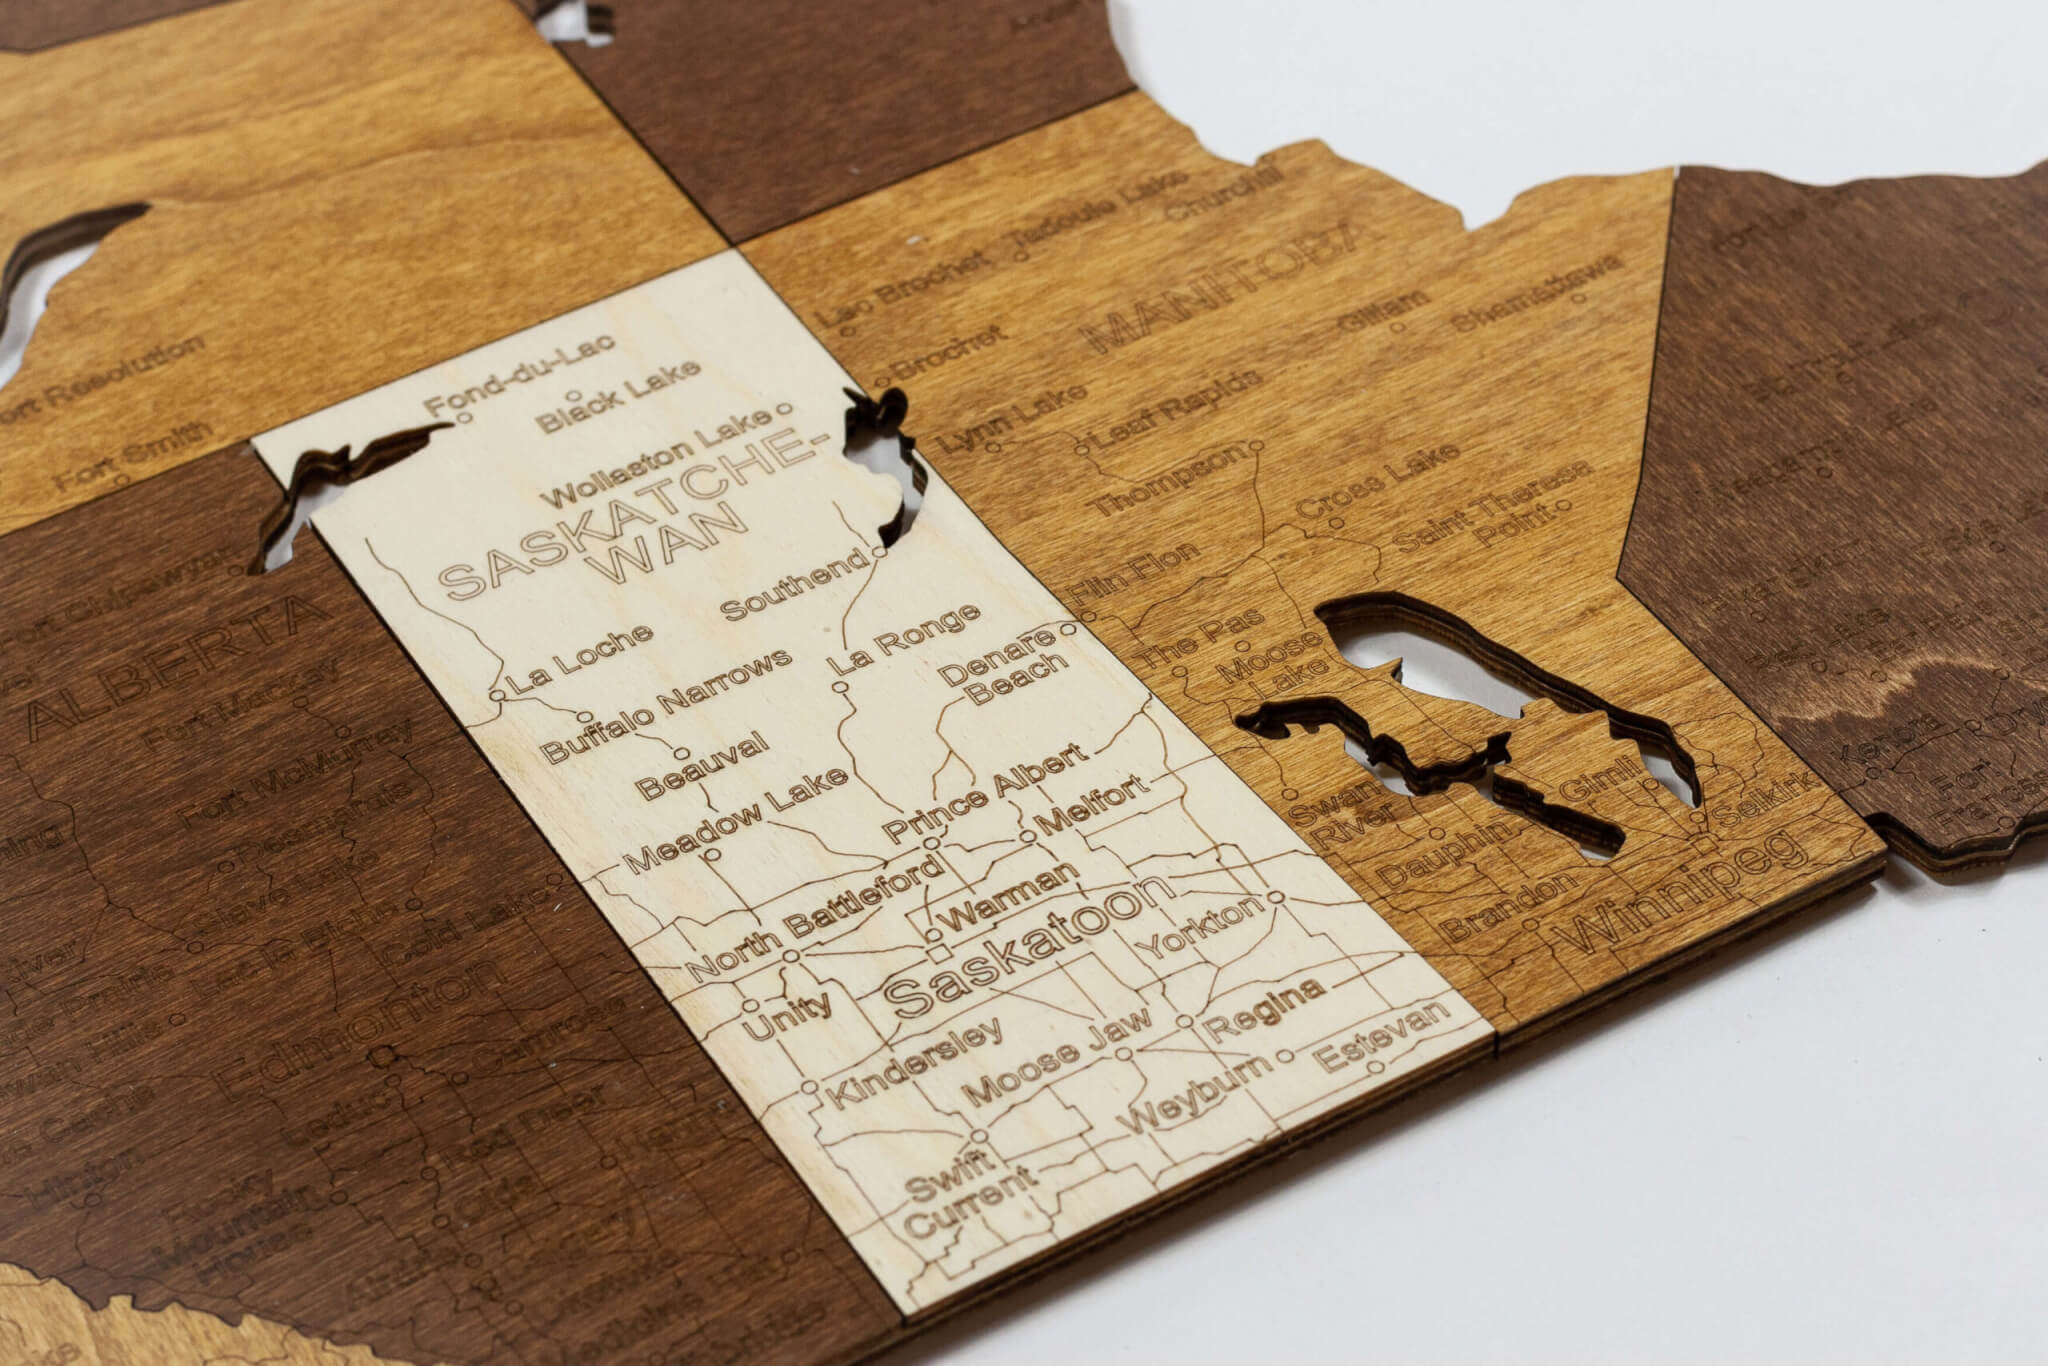 Fort Resolution
Fort Smith
Fond-du-Lac
Black Lake
Wollaston Lake
SASKATCHE-
WAN
Southend
La Loche
La Ronge
Buffalo Narrows
Denare
Beach
Beauval
Meadow Lake
Prince Albert
Melfort
North Battleford
Warman
Saskatoon
Yorkton
Unity
Kindersley
Moose Jaw
Regina
Weyburn
Estevan
Swift
Current
Tadoule Lake
Churchill
Lac Brochet
MANITOBA
Brochet
Gillam
Shamattawa
Lynn Lake
Leaf Rapids
Thompson
Cross Lake
Saint Theresa
Point
Flin Flon
The Pas
Moose
Lake
Swan
River
Gimli
Selkirk
Dauphin
Brandon
Winnipeg
Kenora
ALBERTA
Fort McMurray
Slave Lake
Lac la Biche
Cold Lake
Edmonton
Camrose
Leduc
Red Deer
Hinton
Rocky
Mountain
House
Olds